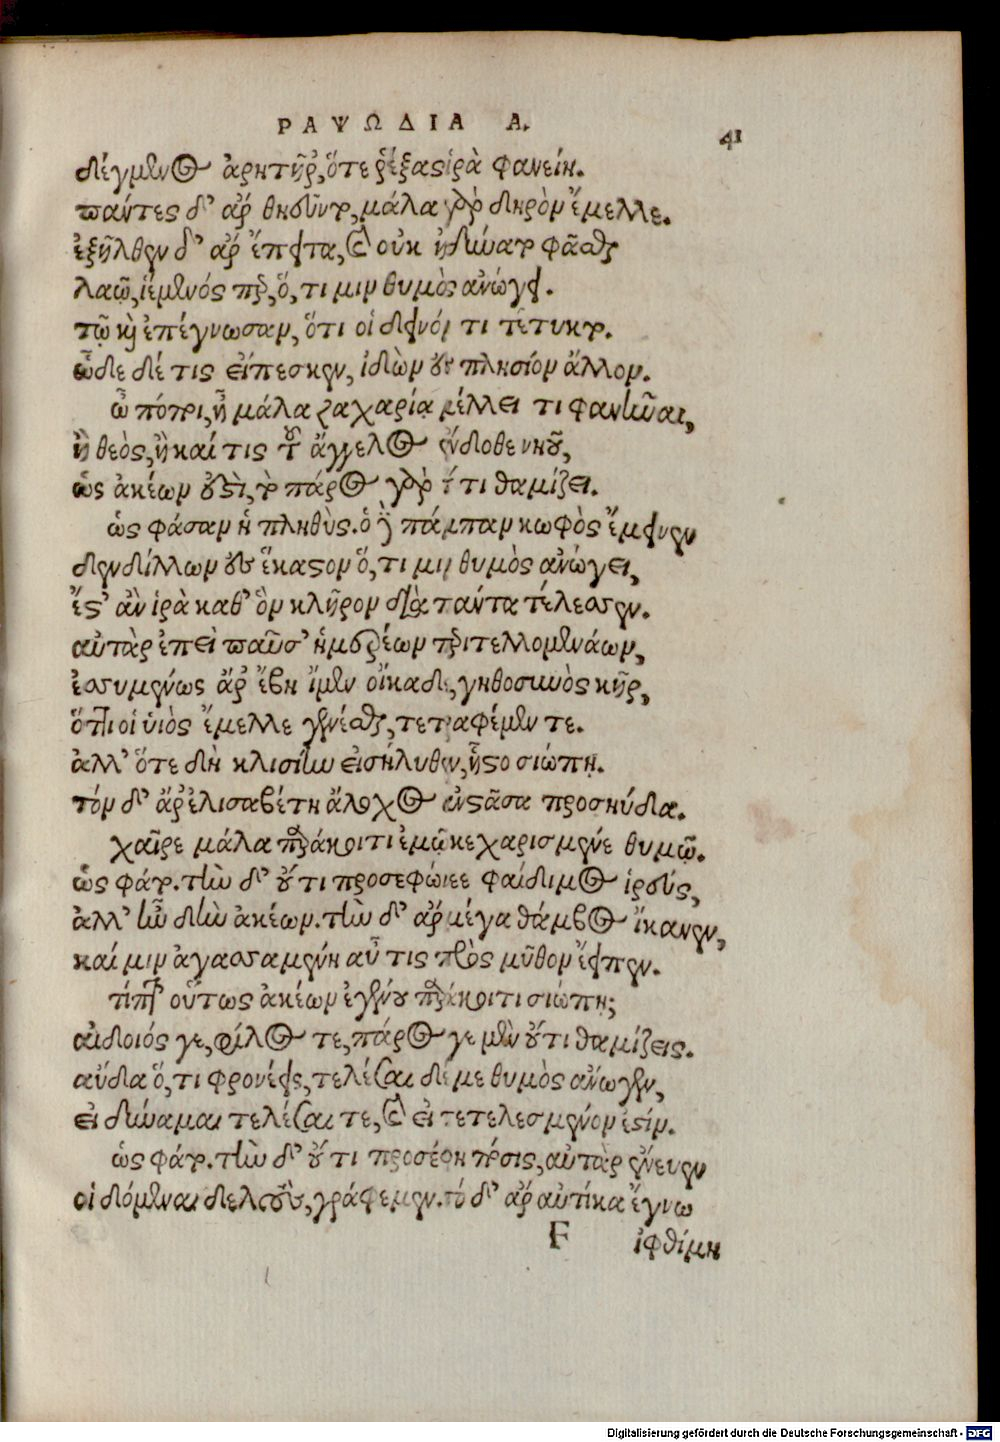 ΡΑΨΩΔΙΑ Α. 41
δέγμενος ἀρητῆρ, ὅτε ῥέξας ἱρὰ φανείη.
πάντες δ' ἂρ θηεῦντο, μάλα γὰρ δηρὸν ἔμελλε.
ἐξῆλθεν δ' ἂρ ἔπειτα, καὶ οὐκ ἠδύνατο φᾶσθαι
λαῷ, ἱέμενός περ, ὅ, τι μιν θυμὸς ἀνώγει.
τῷ καὶ ἐπέγνωσαν, ὅτι οἱ δεινόν τι τέτυκτο.
ὧδε δέ τις εἴπεσκεν, ἰδὼν ἐς πλησίον ἄλλον.
ὦ πόποι, ἦ μάλα ζαχαρίᾳ μέλλει τι φανῆναι,
ἢ θεὸς, ἢ καί τις τοῦ ἄγγελος ἔνδοθε νηοῦ,
ὡς ἀκέων ἐστὶ, τὸ πάρος γὰρ οὔτι θαμίζει.
ὡς φάσαν ἡ πληθὺς. ὁ δὲ πάμπαν κωφὸς ἔμεινεν
δενδίλλων ἐς ἕκαστον ὅ, τι μιν θυμὸς ἀνώγει,
ἔστ' ἂν ἱρὰ καθ' ὃν κλῆρον διὰ πάντα τέλεσσεν.
αὐτὰρ ἐπεὶ παῦσ' ἡμερέων περιτελλομενάων,
ἐσσυμένως ἂρ ἔβη ἴμεν οἴκαδε, γηθοσυνὸς κῆρ,
ὅττι οἱ υἱὸς ἔμελλε γενέσθαι, τετραφέμεν τε.
ἀλλ' ὅτε δὴ κλισίην εἰσήλυθεν, ἧστο σιώπῃ.
τὸν δ' ἂρ ἐλισαβέτη ἄλοχος ἐνστᾶσα προσηύδα.
χαῖρε μάλα παράκοιτι ἐμῷ κεχαρισμένε θυμῷ.
ὡς φάτο. τὴν δ' οὔτι προσεφώνεε φαίδιμος ἱρεύς,
ἀλλ' ἦν δὴν ἀκέων. τὴν δ' ἂρ μέγα θάμβος ἵκανεν,
καί μιν ἀγασσαμένη αὖτις πρὸς μῦθον ἔειπεν.
τίπτ' οὕτως ἀκέων ἐγένου παράκοιτι σιώπῃ;
αἰδοιός γε, φίλος τε, πάρος γε μὲν οὔτι θαμίζεις.
αὔδα ὅ, τι φρονέεις, τελέσαι δέ με θυμὸς ἀνωγεν,
εἰ δύναμαι τελέσαι τε, καὶ εἰ τετελεσμένον ἐστίν.
ὡς φάτο. τὴν δ' οὔτι προσέφη πόσις, αὐτὰρ ἔνευεν
οἱ δόμεναι δελτοὺς, γράφεμεν. τό δ' ἂρ αὐτίκα ἔγνω
F ἰφθίμη
Digitalisierung gefördert durch die Deutsche Forschungsgemeinschaft - DFG